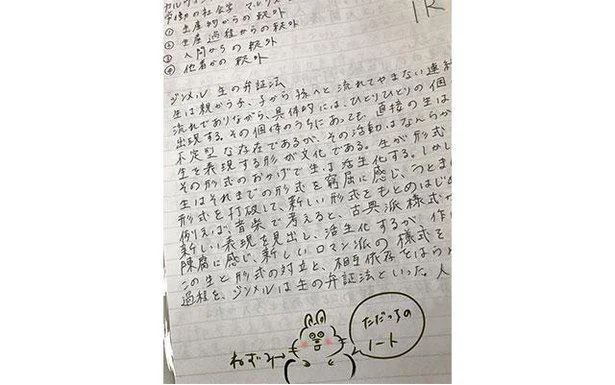 労働の社会学 マルクス
① 生産物からの疎外
② 生産過程からの疎外
③ 人間からの疎外
④ 他者からの疎外
ジンメル 生の弁証法
生は親から子、子から孫へと流れてやまない連続
流れでありながら、具体的には、ひとりひとりの個
出現する。その個体のうちにあっても、直接の生は
不定型な存在であるが、その活動はなんらか
生を表現する形が文化である。生が形式
その形式のおかげで生は活生化する。しかし
生はそれまでの形式を窮屈に感じ、うとま
形式を打破して、新しい形式をもとめはじめ
例えば、音楽で考えると、古典派様式が
新しい表現を見出し、活生化するが、作
陳腐に感じ、新しいロマン派の様式を
この生と形式の対立と、相互依存をはらん
過程を、ジンメルは生の弁証法といった。人
ねずみ→
ただっちの
ノート